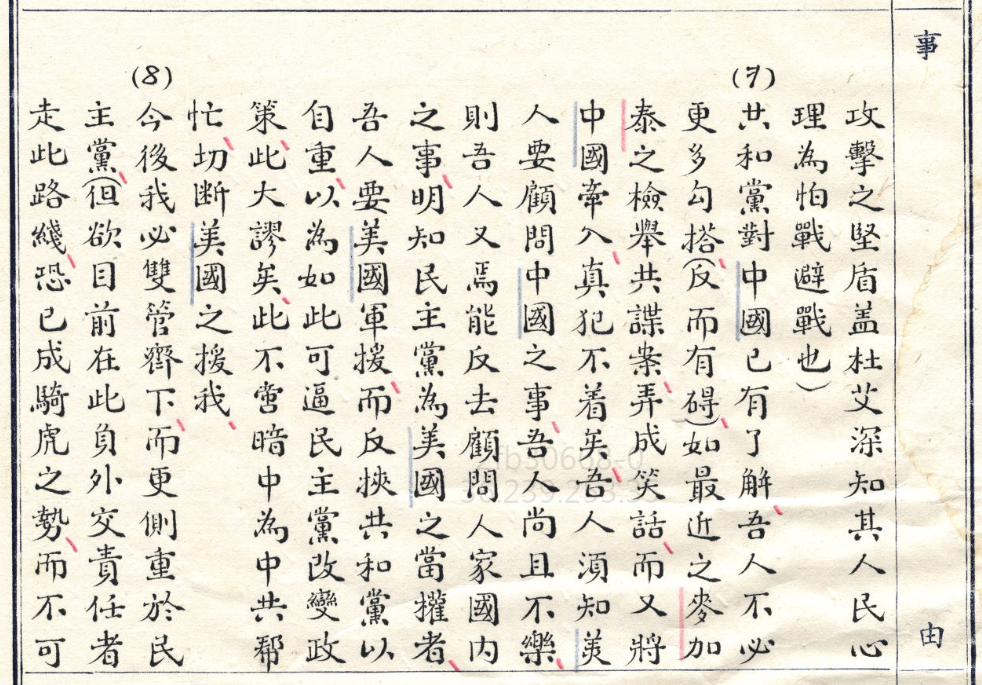 事由
攻擊之堅盾盖杜艾深知其人民心
理為怕戰避戰也）
(7)
共和黨對中國已有了解、吾人不必
更多勾搭、(反而有碍)、如最近之麥加
泰之檢舉共諜案、弄成笑話、而又將
中國牽入、真犯不着矣、吾人須知美
人要顧問中國之事、吾人尚且不樂、
則吾人又焉能反去顧問人家國内
之事、明知民主黨為美國之當權者、
吾人要美國軍援、而反挾共和黨以
自重、以為如此可逼民主黨改變政
策、此大謬矣、此不啻暗中為中共帮
忙、切断美國之援我、
(8)
今後我必雙管齊下、而更側重於民
主黨、(但欲目前在此負外交責任者
走此路綫、恐已成騎虎之勢、而不可